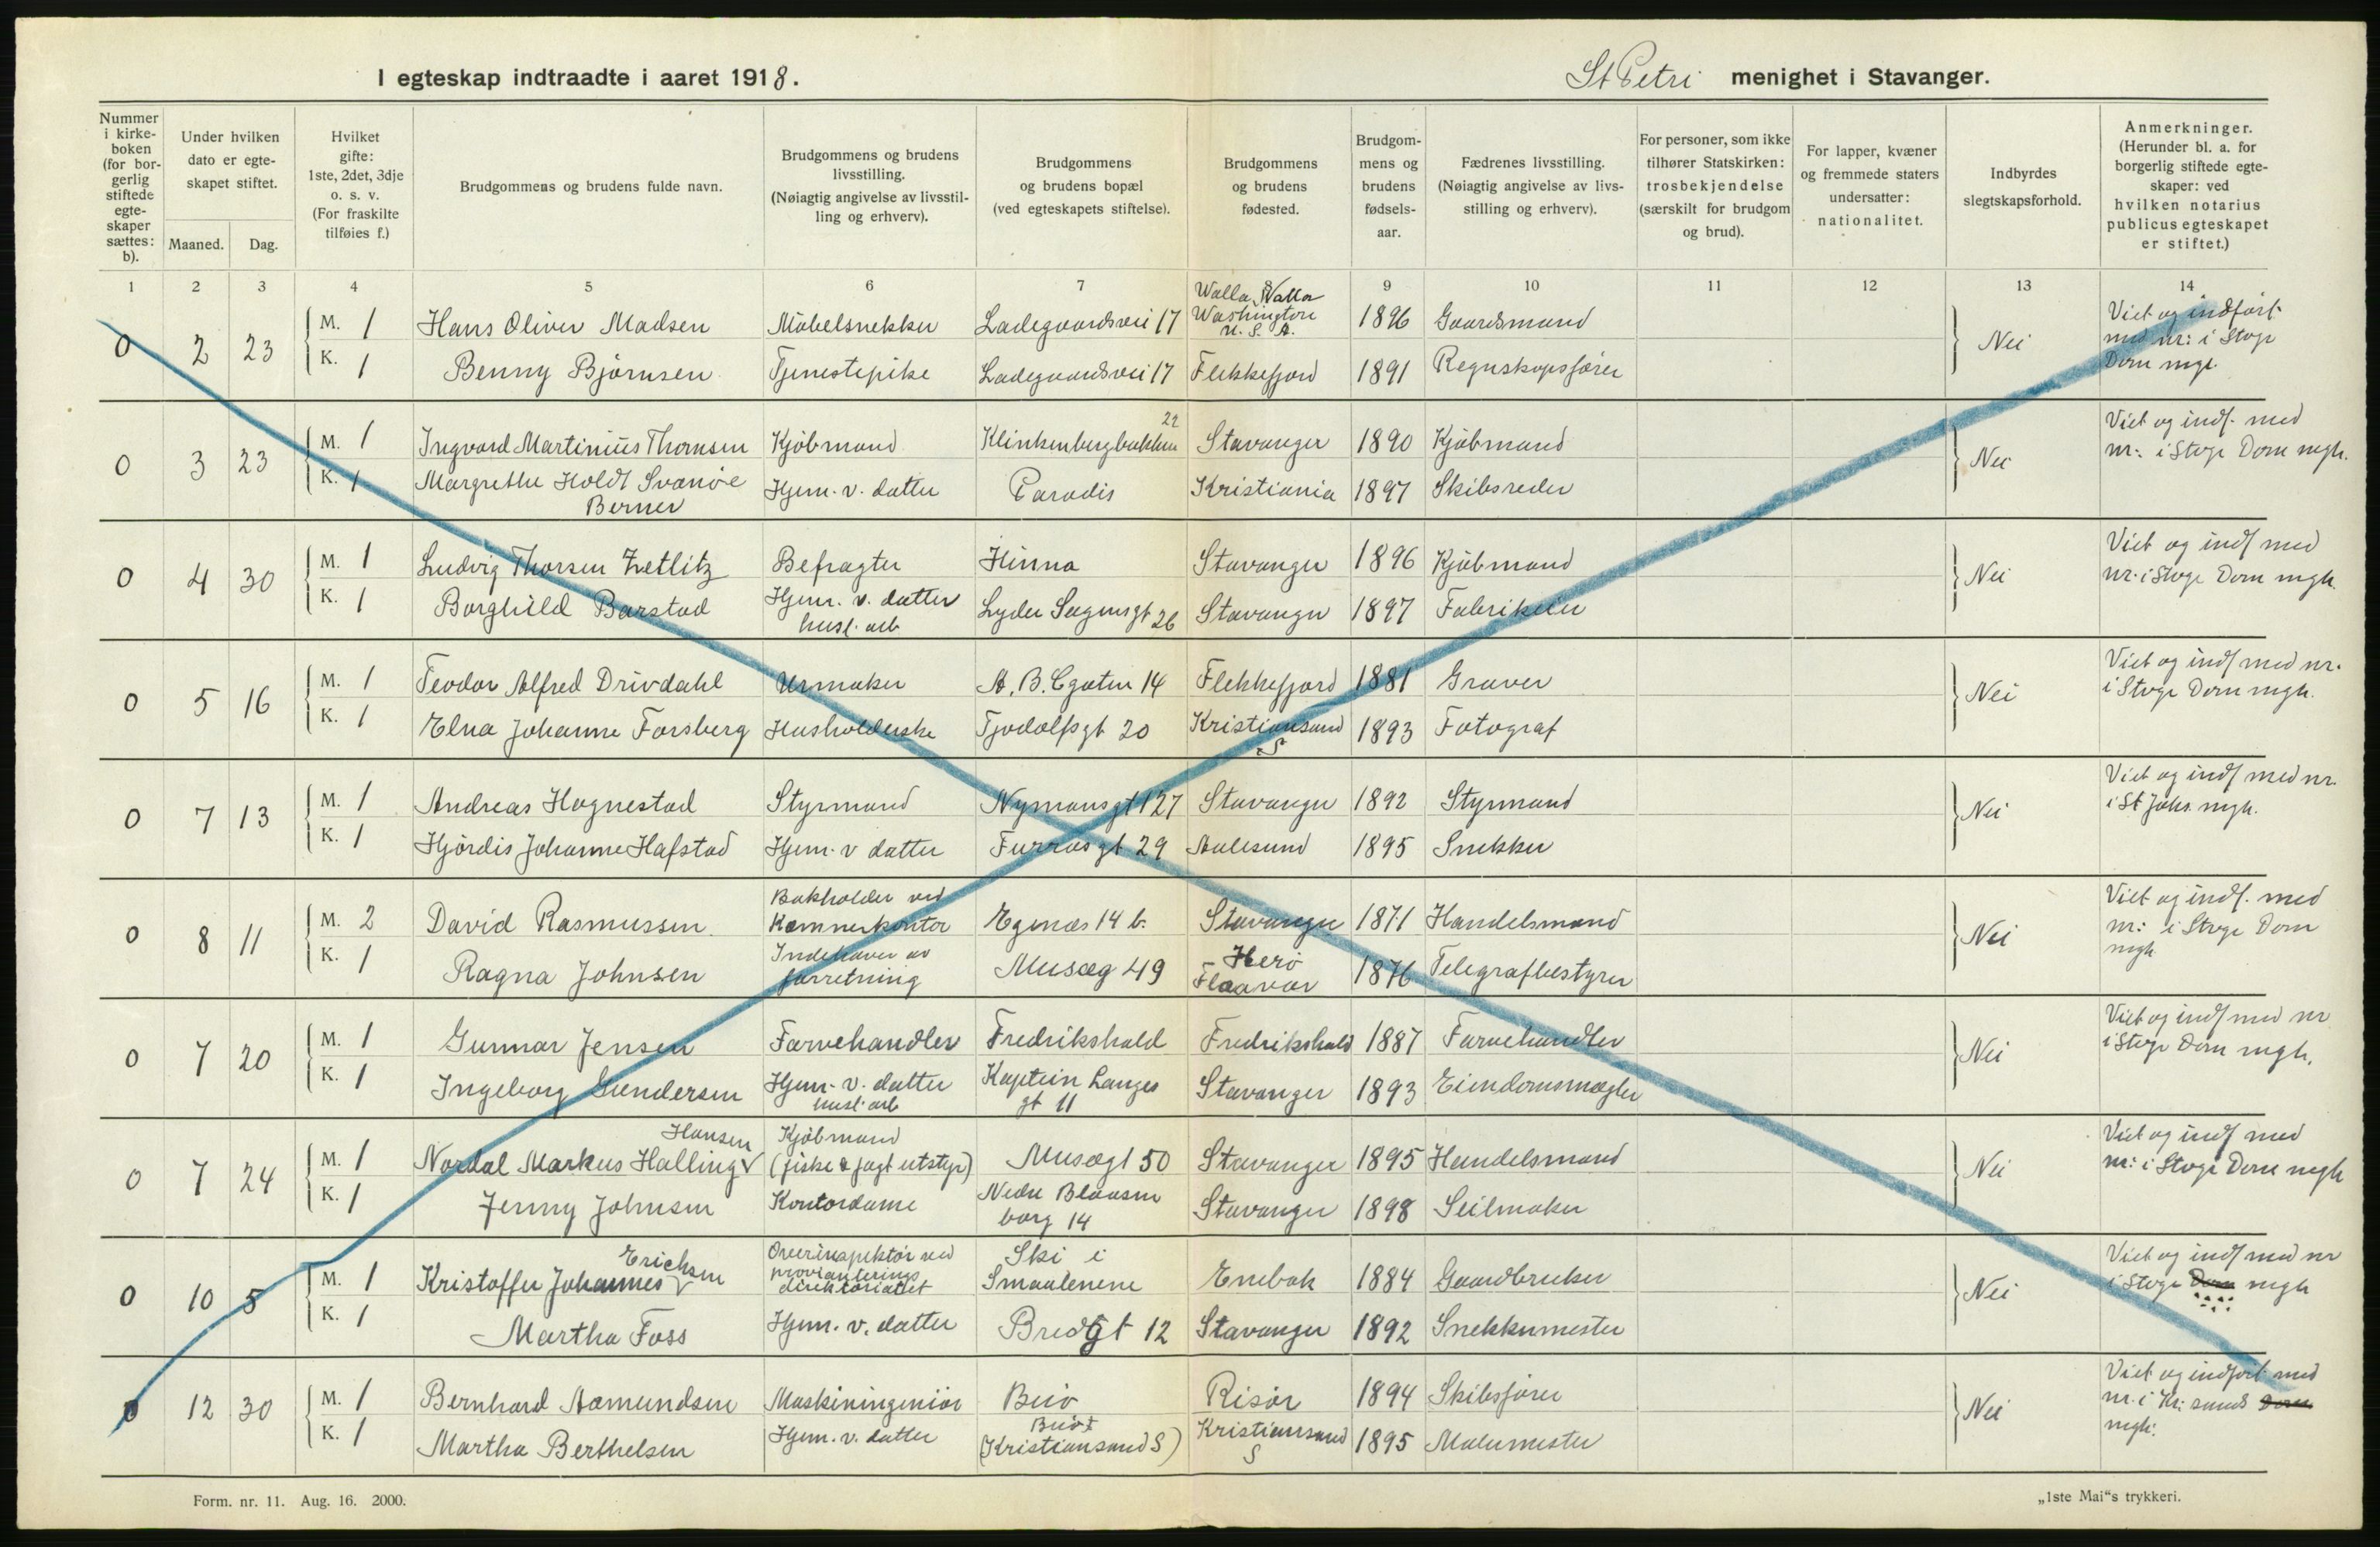 I egteskap indtraadte i aaret 1918.
St Petri menighet i Stavanger.
Nummer i kirkeboken (for borgerlig stiftede egteskaper sættes: b).
Under hvilken dato er egteskapet stiftet.
Maaned. Dag.
Hvilket gifte: 1ste, 2det, 3dje o. s. v. (For fraskilte tilføies f.)
Brudgommens og brudens fulde navn.
Brudgommens og brudens livsstilling. (Nøiagtig angivelse av livsstilling og erhverv).
Brudgommens og brudens bopæl (ved egteskapets stiftelse).
Brudgommens og brudens fødested.
Brudgommens og brudens fødselsaar.
Fædrenes livsstilling. (Nøiagtig angivelse av livsstilling og erhverv).
For personer, som ikke tilhører Statskirken: trosbekjendelse (særskilt for brudgom og brud).
For lapper, kvæner og fremmede staters undersatter: nationalitet.
Indbyrdes slegtskapsforhold.
Anmerkninger. (Herunder bl. a. for borgerlig stiftede egteskaper: ved hvilken notarius publicus egteskapet er stiftet.)
1 2 3 4 5 6 7 8 9 10 11 12 13 14
0 2 23 M. 1 Hans Oliver Madsen Møbelsnekker Ladegaardsvei 17 Walla Walla Washington U. S. A. 1896 Gaardsmand Nei Viet og indført med nr: i Stvgr Dom mgt.
K. 1 Benny Bjørnsen Tjenestepike Ladegaardsvei 17 Flekkefjord 1891 Regnskapsfører
0 3 23 M. 1 Ingvard Martinius Thomsen Kjøbmand Klinkenbergbakken 22 Stavanger 1890 Kjøbmand Nei Viet og indf. med nr: i Stvgr Dom mgh.
K. 1 Margrethe Holdt Svanøe Berner Hjem. v. datter Paradis Kristiania 1897 Skibsreder
0 4 30 M. 1 Ludvig Thorsen Zetlitz Befragter Hinna Stavanger 1896 Kjøbmand Nei Viet og indf med nr. i Stvgr Dom mgh.
K. 1 Borghild Barstad Hjem. v. datter husl. arb Lyder Sagensgt 26 Stavanger 1897 Fabrikeier
0 5 16 M. 1 Teodor Alfred Drivdahl Urmaker A. B. Cgaten 14 Flekkefjord 1881 Graver Nei Viet og indf med nr. i Stvgr Dom mgh.
K. 1 Elna Johanne Forsberg Husholderske Tjodolfsgt 20 Kristiansand S 1893 Fotograf
0 7 13 M. 1 Andreas Hognestad Styrmand Nymansgt 127 Stavanger 1892 Styrmand Nei Viet og indf med nr. i St Johs. mgh.
K. 1 Hjørdis Johanne Hafstad Hjem. v datter Furrasgt 29 Aalesund 1895 Snekker
0 8 11 M. 2 David Rasmussen Bokholder ved Kæmnerkontor Egenæs 14 b. Stavanger 1871 Handelsmand Nei Viet og indf. med nr: i Stvgr Dom mgh
K. 1 Ragna Johnsen Indehaver av forretning Musæg 49 Herø Flaavær 1876 Telegrafbestyrer
0 7 20 M. 1 Gunnar Jensen Farvehandler Fredrikshald Fredrikshald 1887 Farvehandler Nei Viet og indf med nr i Stvgr Dom mgh.
K. 1 Ingeborg Gundersen Hjem. v. datter husl. arb Kaptein Langes gt 11 Stavanger 1893 Eiendomsmægler
0 7 24 M. 1 Nordal Markus Halling Hansen Kjøbmand (fiske & jagt utstyr) Musægt 50 Stavanger 1895 Handelsmand Nei Viet og indf med nr: i Stvgr Dom mgh
K. 1 Jenny Johnsen Kontordame Nedre Blaasenborg 14 Stavanger 1898 Seilmaker
0 10 5 M. 1 Kristoffer Johannes Erichsen Overinspektør ved provianteringsdirektoriatet Ski i Smaalenene Enebak 1884 Gaardbruker Nei Viet og indf med nr i Stvgr Dom mgh
K. 1 Martha Foss Hjem. v. datter Bredgt 12 Stavanger 1892 Snekkermester
0 12 30 M. 1 Bernhard Aamundsen Maskiningeniør Buø Risør 1894 Skibsfører Nei Viet og indført med nr. i Kr: sands Dom mgh.
K. 1 Martha Berthelsen Hjem. v. datter Buøt (Kristiansand S) Kristiansand S 1895 Malermester
Form. nr. 11. Aug. 16. 2000.
„1ste Mai“s trykkeri.